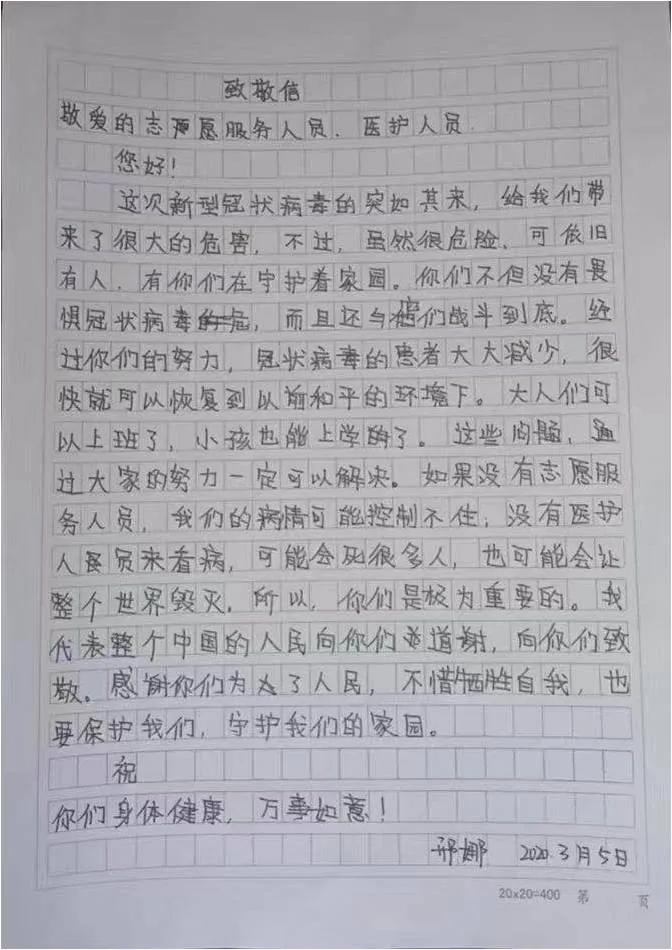 致敬信
敬爱的志愿服务人员、医护人员
您好！
这次新型冠状病毒的突如其来，给我们带
来了很大的危害，不过，虽然很危险，可依旧
有人，有你们在守护着家园。你们不但没有畏
惧冠状病毒，而且还与它们战斗到底。经
过你们的努力，冠状病毒的患者大大减少，很
快就可以恢复到以前和平的环境下。大人们可
以上班了，小孩也能上学了。这些问题，通
过大家的努力一定可以解决。如果没有志愿服
务人员，我们的病情可能控制不住；没有医护
人员来看病，可能会死很多人，也可能会让
整个世界毁灭，所以，你们是极为重要的。我
代表整个中国的人民向你们道谢，向你们致
敬。感谢你们为了人民，不惜牺牲自我，也
要保护我们，守护我们的家园。
祝
你们身体健康，万事如意！
邢娜 2020.3月5日
20x20=400 第 页